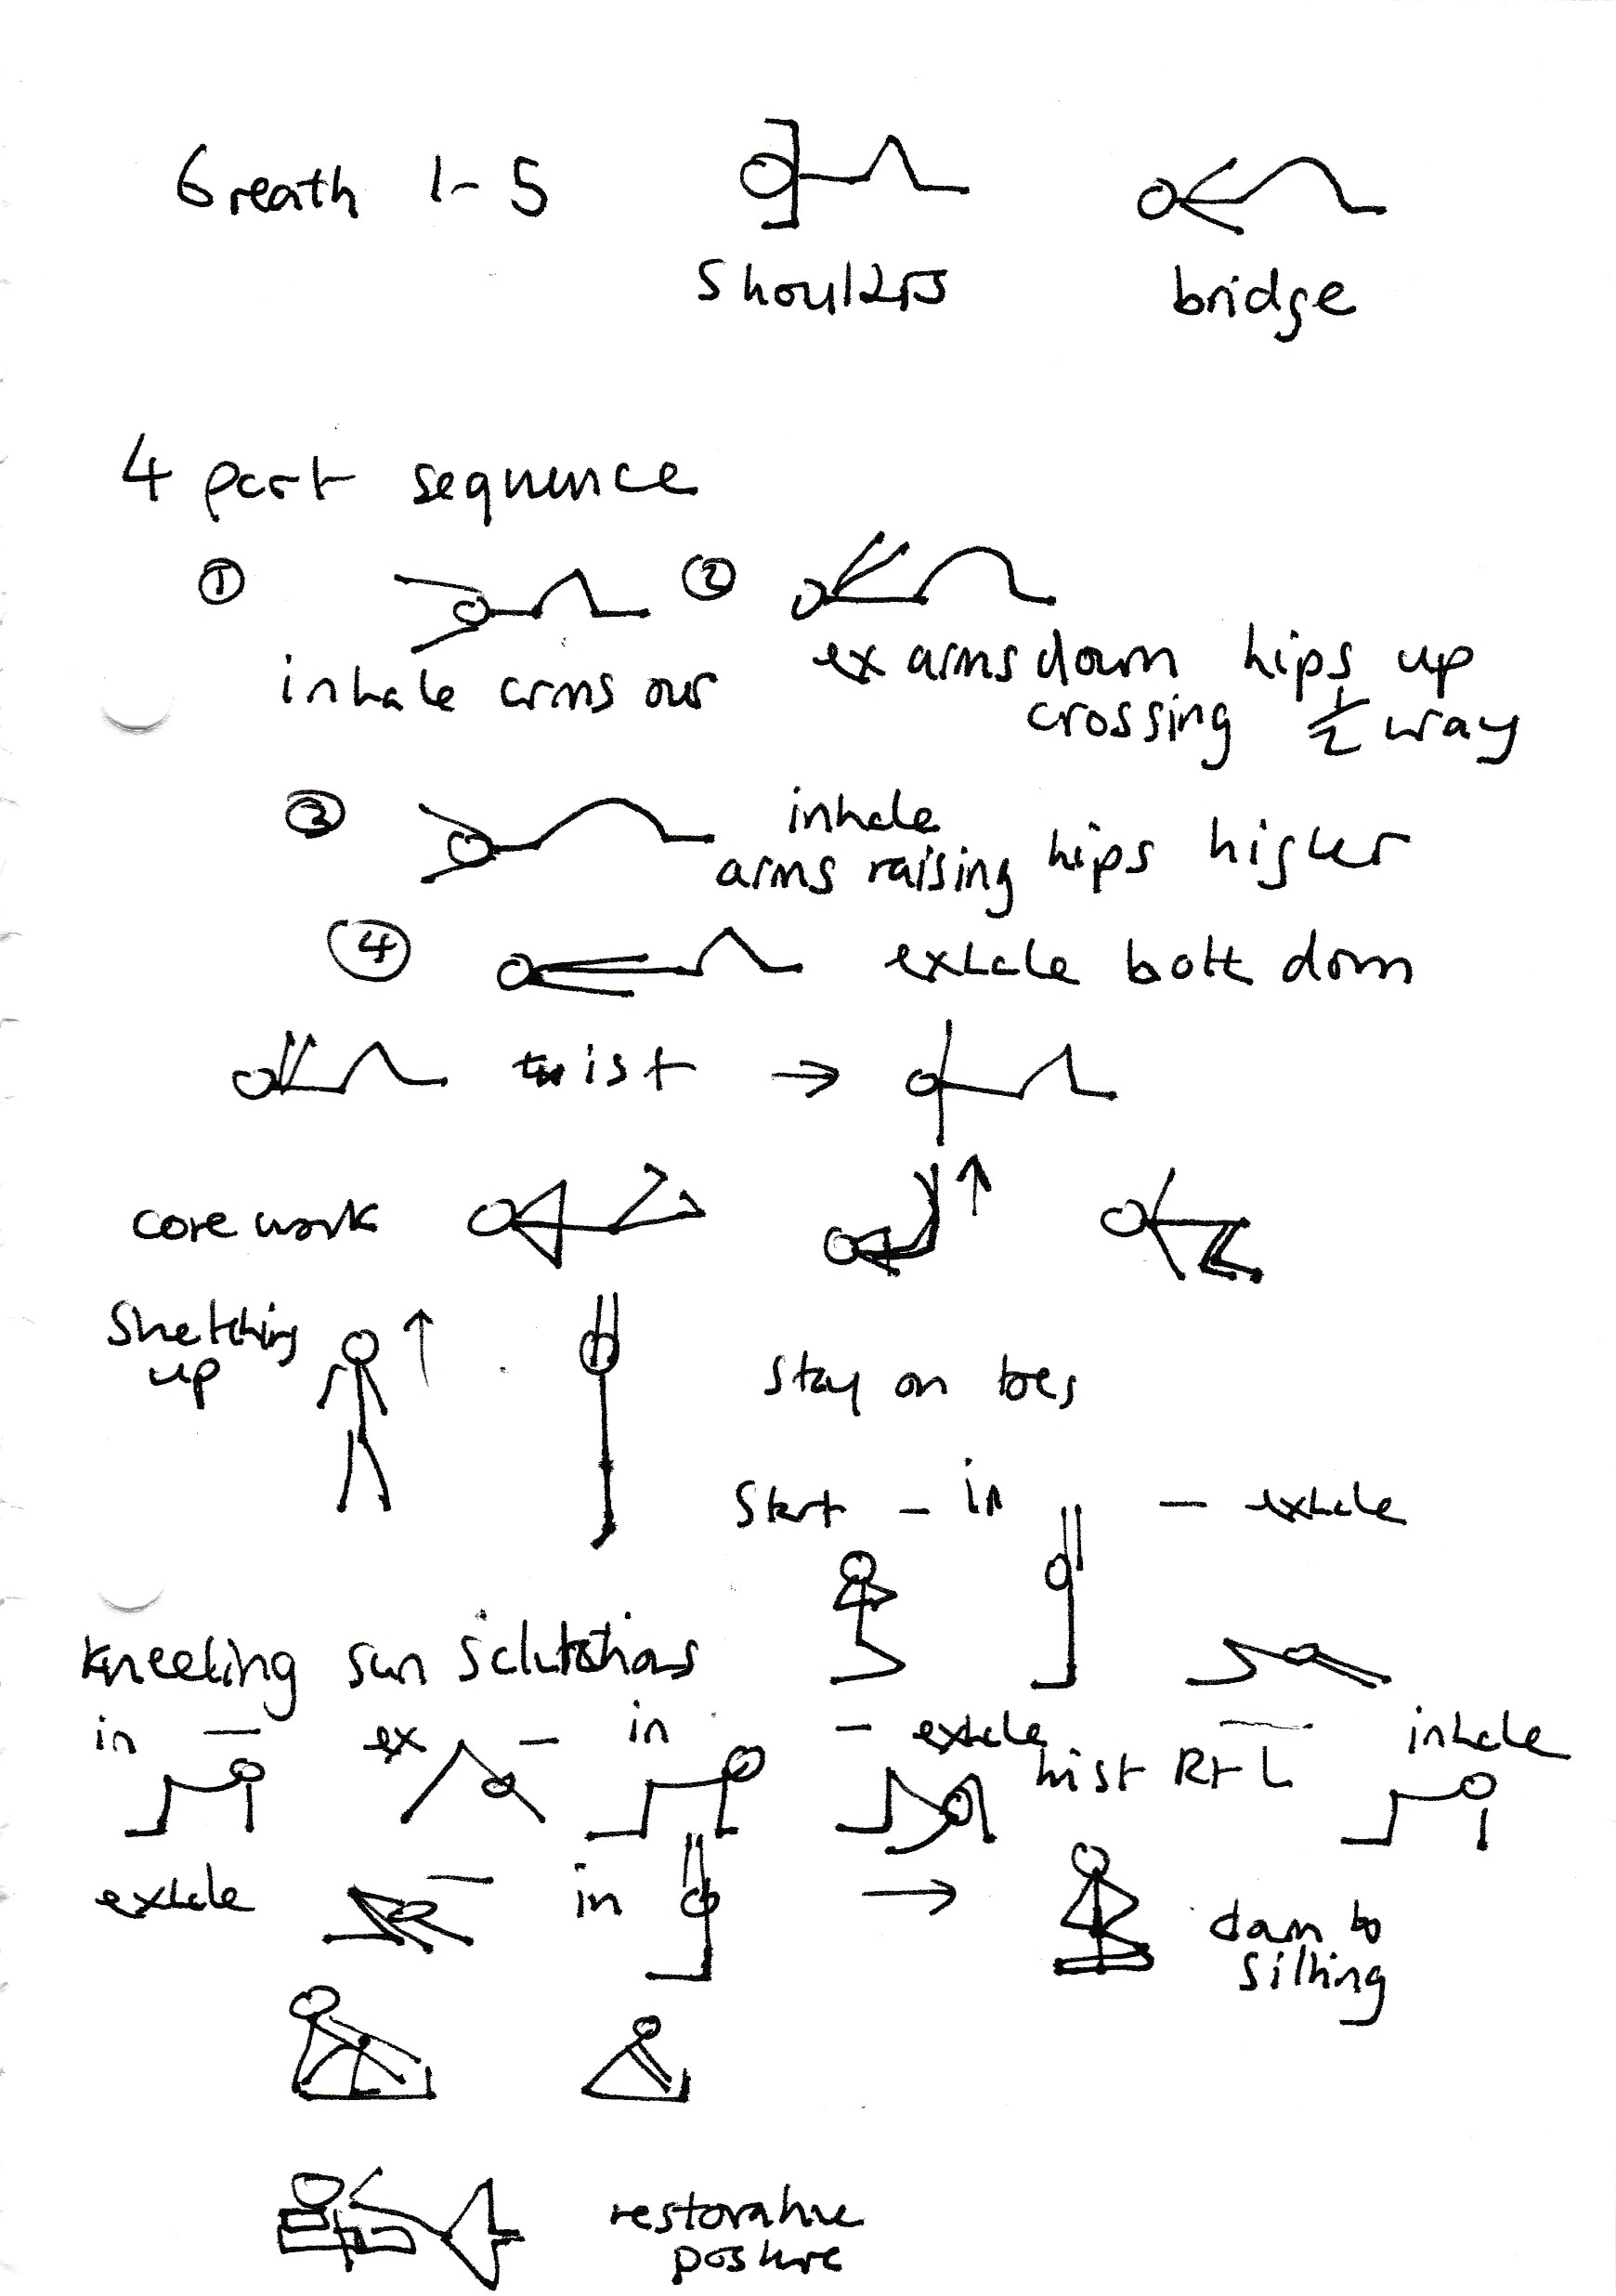 Breath 1-5
shoulders
bridge
4 part sequence
① ②
inhale arms over
ex arms down hips up
crossing 1/2 way
③ inhale
arms raising hips higher
④ exhale both down
twist →
core work ↑
Stretching
up ↑
stay on toes
Start - in - exhale
kneeling sun salutations
in — ex — in — exhale twist R+L — inhale
exhale — in → down to
sitting
restorative
posture